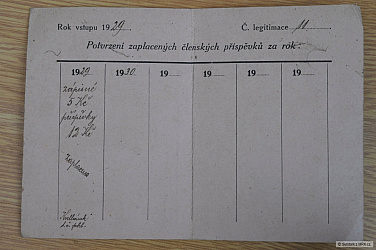 Rok vstupu 1929. Č. legitimace 11
Potvrzení zaplacených členských příspěvků za rok:
1929 1930 19 19 19 19
zápisné
5 Kč
příspěvky
12 Kč
zaplaceno